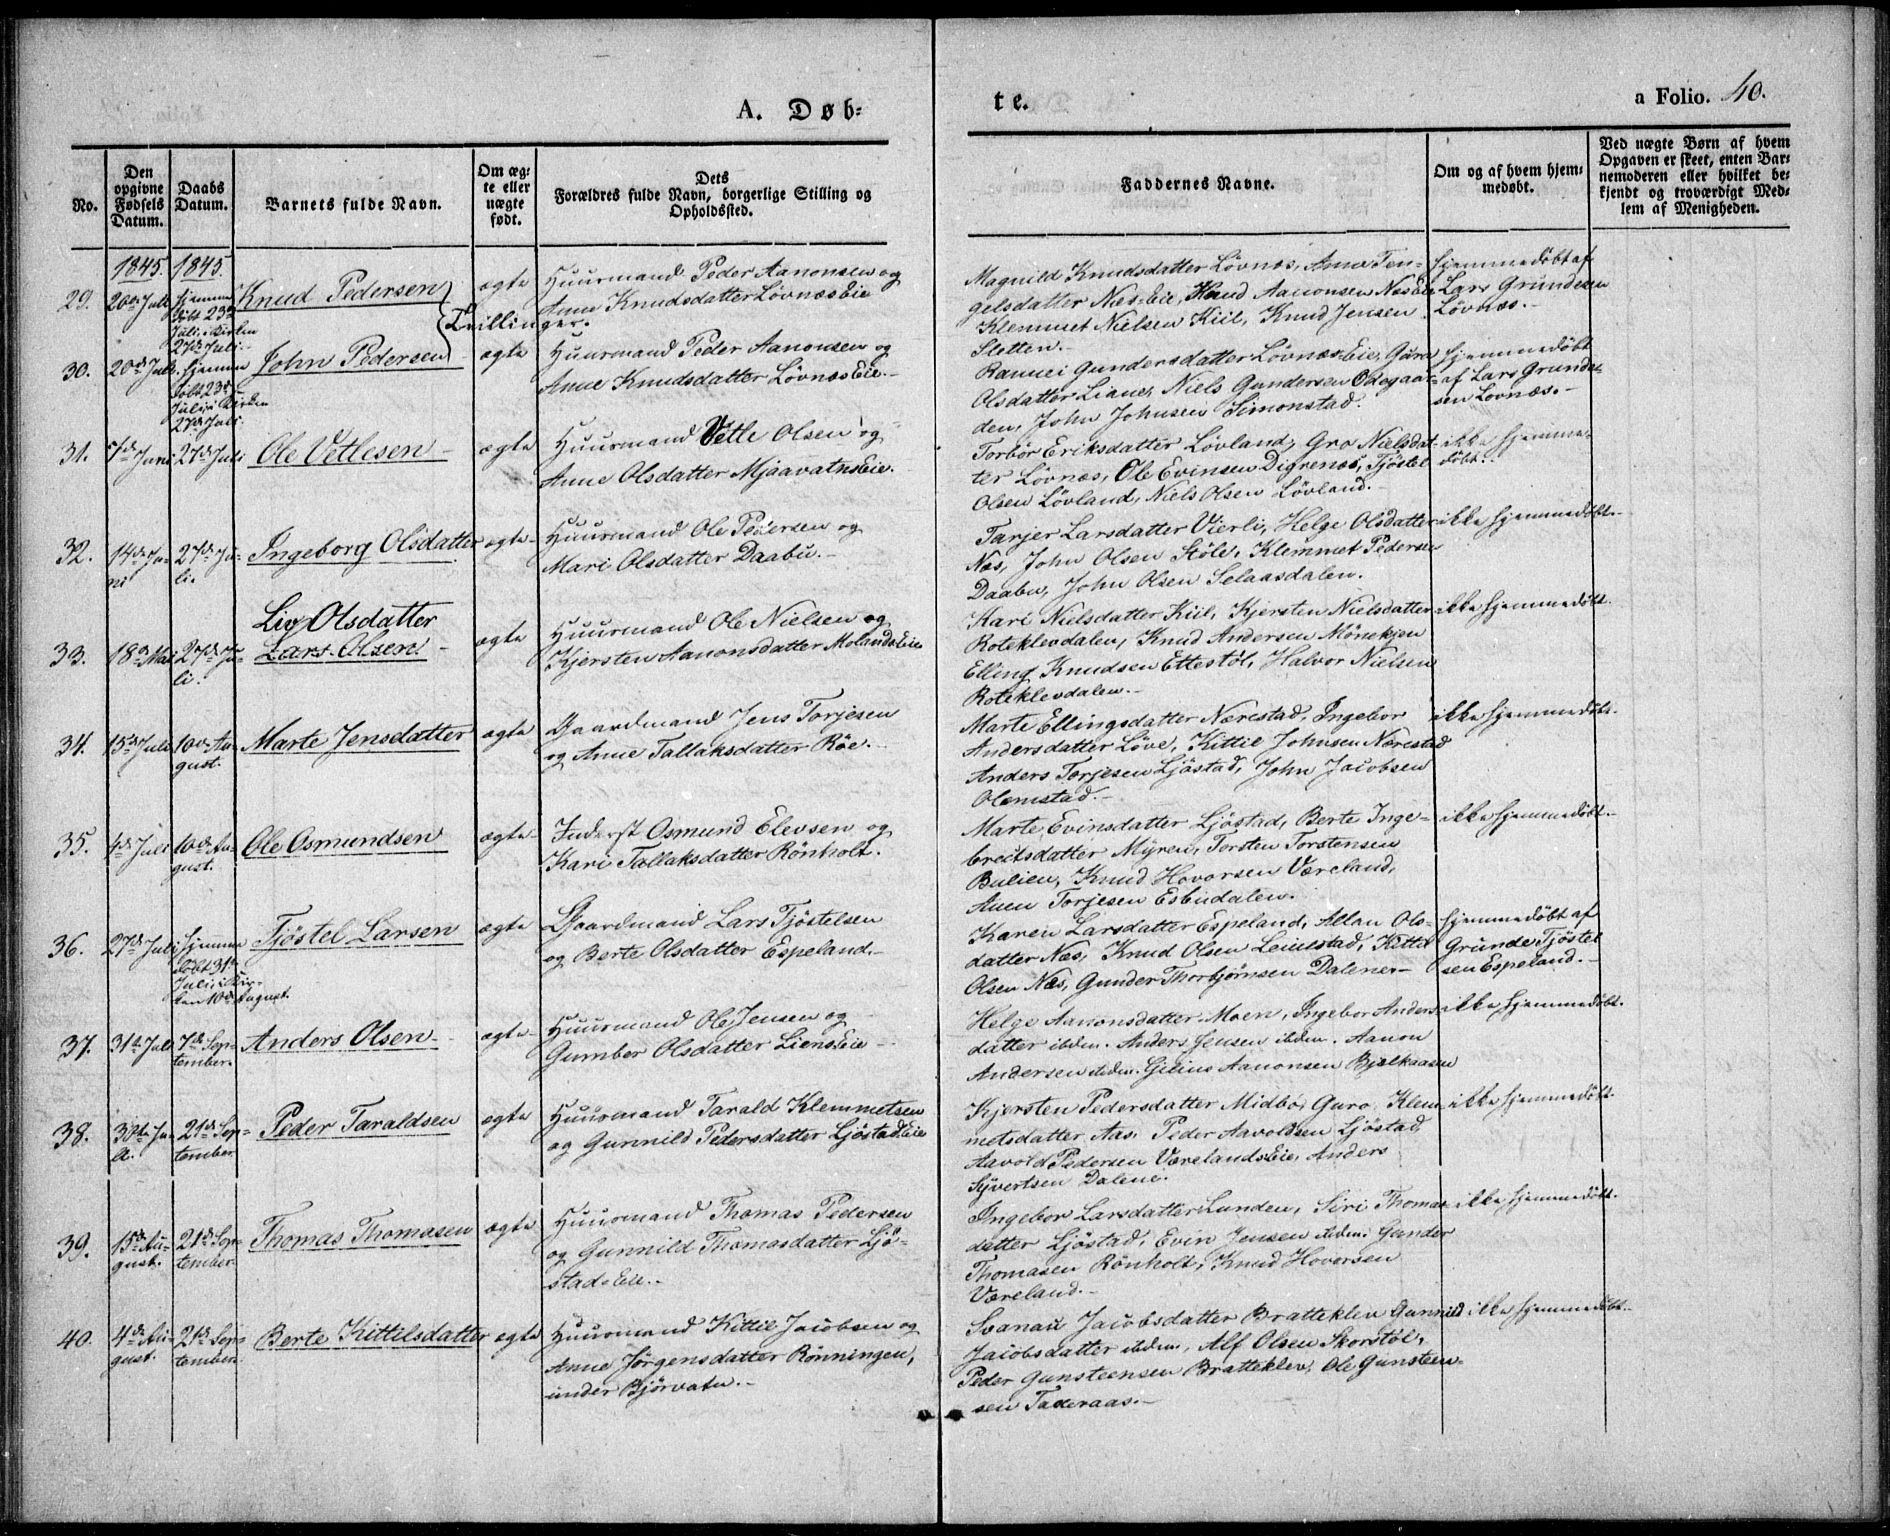 A. Døb-
te.
a Folio. 40.
No.
Den opgivne Fødsels Datum.
Daabs Datum.
Barnets fulde Navn.
Om ægte eller uægte født.
Dets Forældres fulde Navn, borgerlige Stilling og Opholdssted.
Faddernes Navne.
Om og af hvem hjemmedøbt.
Ved uægte Børn af hvem Opgaven er skeet, enten Barnemoderen eller hvilket bekjendt og troværdigt Medlem af Menigheden.
1845. 1845.
29. 20de Juli hjemmedøbt 23de Juli, i Kirken 27de Juli. Knud Pedersen ægte
Huusmand Peder Aanonsen og
Anne Knudsdatter Løvnæs Eie
{Tvillinger.
Magnild Knudsdatter Løvnæs, Anne Ten-
gelsdatter Næs-Eie, Knud Aanonsen NæsEie
Klemmet Nielsen Kiil, Knud Jensen
Sletten.
hjemmedøbt af
Lars Grundesen
Løvnæs.
30. 20de Juli hjemmedøbt 23de Juli, i Kirken 27de Juli. John Pedersen ægte
Huusmand Peder Aanonsen og
Anne Knudsdatter Løvnæs Eie.
Rannei Gundersdatter Løvnæs Eie, Guro
Olsdatter Liane, Niels Gundersen Ødegaar-
den, John Johnsen Simonstad.
hjemmedøbt
af Lars Grunde-
sen Løvnæs.
31. 7de Juni 27de Juli Ole Vetlesen ægte
Huusmand Vetle Olsen og
Anne Olsdatter Mjaavatns Eie.
Torbør Eriksdatter Løvland, Gro Nielsdat-
ter Løvnæs, Ole Evinsen Digrenæs, Tjöstel
Olsen Løvland, Niels Olsen Løvland.
ikke hjemme-
døbt.
32. 14de Ju-
ni 27de Ju-
li. Ingeborg Olsdatter ægte
Huusmand Ole Pedersen og
Mari Olsdatter Daabu.
Tarjer Larsdatter Vierli, Helge Olsdatter
Næs, John Olsen Støle, Klemmet Pedersen
Daabu, John Olsen Selaasdalen.
ikke hjemmedøbt.
33. 18de Mai 27de Ju-
li. Liv Olsdatter
Lars Olsen ægte
Huusmand Ole Nielsen og
Kjersten Aanonsdatter Molands Eie
Kari Nielsdatter Kiil, Kjersten Nielsdatter
Roteklevdalen, Knud Andersen Mönekjen
Elling Knudsen Ettestöl, Halvor Nielsen
Roteklevdalen.
ikke hjemmedøbt.
34. 15de Juli 10de Au-
gust. Marte Jensdatter ægte
Gaardmand Jens Torjesen
og Anne Tallaksdatter Röe.
Marte Ellingsdatter Nærestad, Ingebor
Andersdatter Løve, Kittil Johnsen Nærestad
Anders Torjesen Ljöstad, John Jacobsen
Olemstad.
ikke hjemmedøbt.
35. 4de Juli 10de Au-
gust. Ole Osmundsen ægte
Inderst Osmund Elevsen og
Kari Tallaksdatter Rönholt.
Marte Evinsdatter Ljöstad, Berte Inge-
breitsdatter Myren, Torsten Torstensen
Bulien, Knud Hovorsen Væreland,
Auen Torjesen Esbudalen.
ikke hjemmedøbt.
36. 27de Juli hjemmedøbt 31te Juli, i Kirken 10de August. Tjöstel Larsen ægte
Gaardmand Lars Tjöstelsen
og Berte Olsdatter Espeland.
Karen Larsdatter Espeland, Allau Ols-
datter Næs, Knud Olsen Leinestad, Kittil
Olsen Næs, Gunder Thorbjørnsen Dalene
hjemmedøbt af
Grunde Tjöstel-
sen Espeland.
37. 31te Juli 7de Sep-
tember. Anders Olsen ægte
Huusmand Ole Jensen og
Gumber Olsdatter Liens Eie
Helge Aanonsdatter Moen, Ingebor Anders-
datter ibdm. Anders Jensen ibdm. Aanon
Andersen ibdm. Gjelius Aanonsen Bjelkaasen
ikke hjemmedøbt.
38. 30te Ju-
li. 21de Sep-
tember Peder Taraldsen ægte
Huusmand Tarald Klemmetsen
og Gunnild Pedersdatter Ljöstad Eie
Kjersten Pedersdatter Midbø, Guro Klem-
metsdatter Aas, Peder Aavoldsen Ljöstad,
Aavold Pedersen Værelands Eie, Anders
Syvertsen Dalene.
ikke hjemmedøbt.
39. 15de Au-
gust. 21de Sep-
tember Thomas Thomasen ægte
Huusmand Thomas Pedersen
og Gunnild Thomasdatter Ljö-
stad-Eie.
Ingebor Larsdatter Lunden, Siri Thomas-
datter Ljöstad, Evin Jensen ibdm. Gunder
Thomasen Rönholt, Knud Hovorsen
Væreland.
ikke hjemmedøbt.
40. 4de Au-
gust. 21de Sep-
tember Berte Kittilsdatter ægte
Huusmand Kittil Jacobsen og
Anne Jörgensdatter Rönningen,
under Bjørvatn.
Svanau Jacobsdatter Bratteklev Gunnild
Jacobsdatter ibdm., Alf Olsen Skorstøl,
Peder Gunsteensen Bratteklev, Ole Gunsteen-
sen Taderaas.
ikke hjemmedøbt.